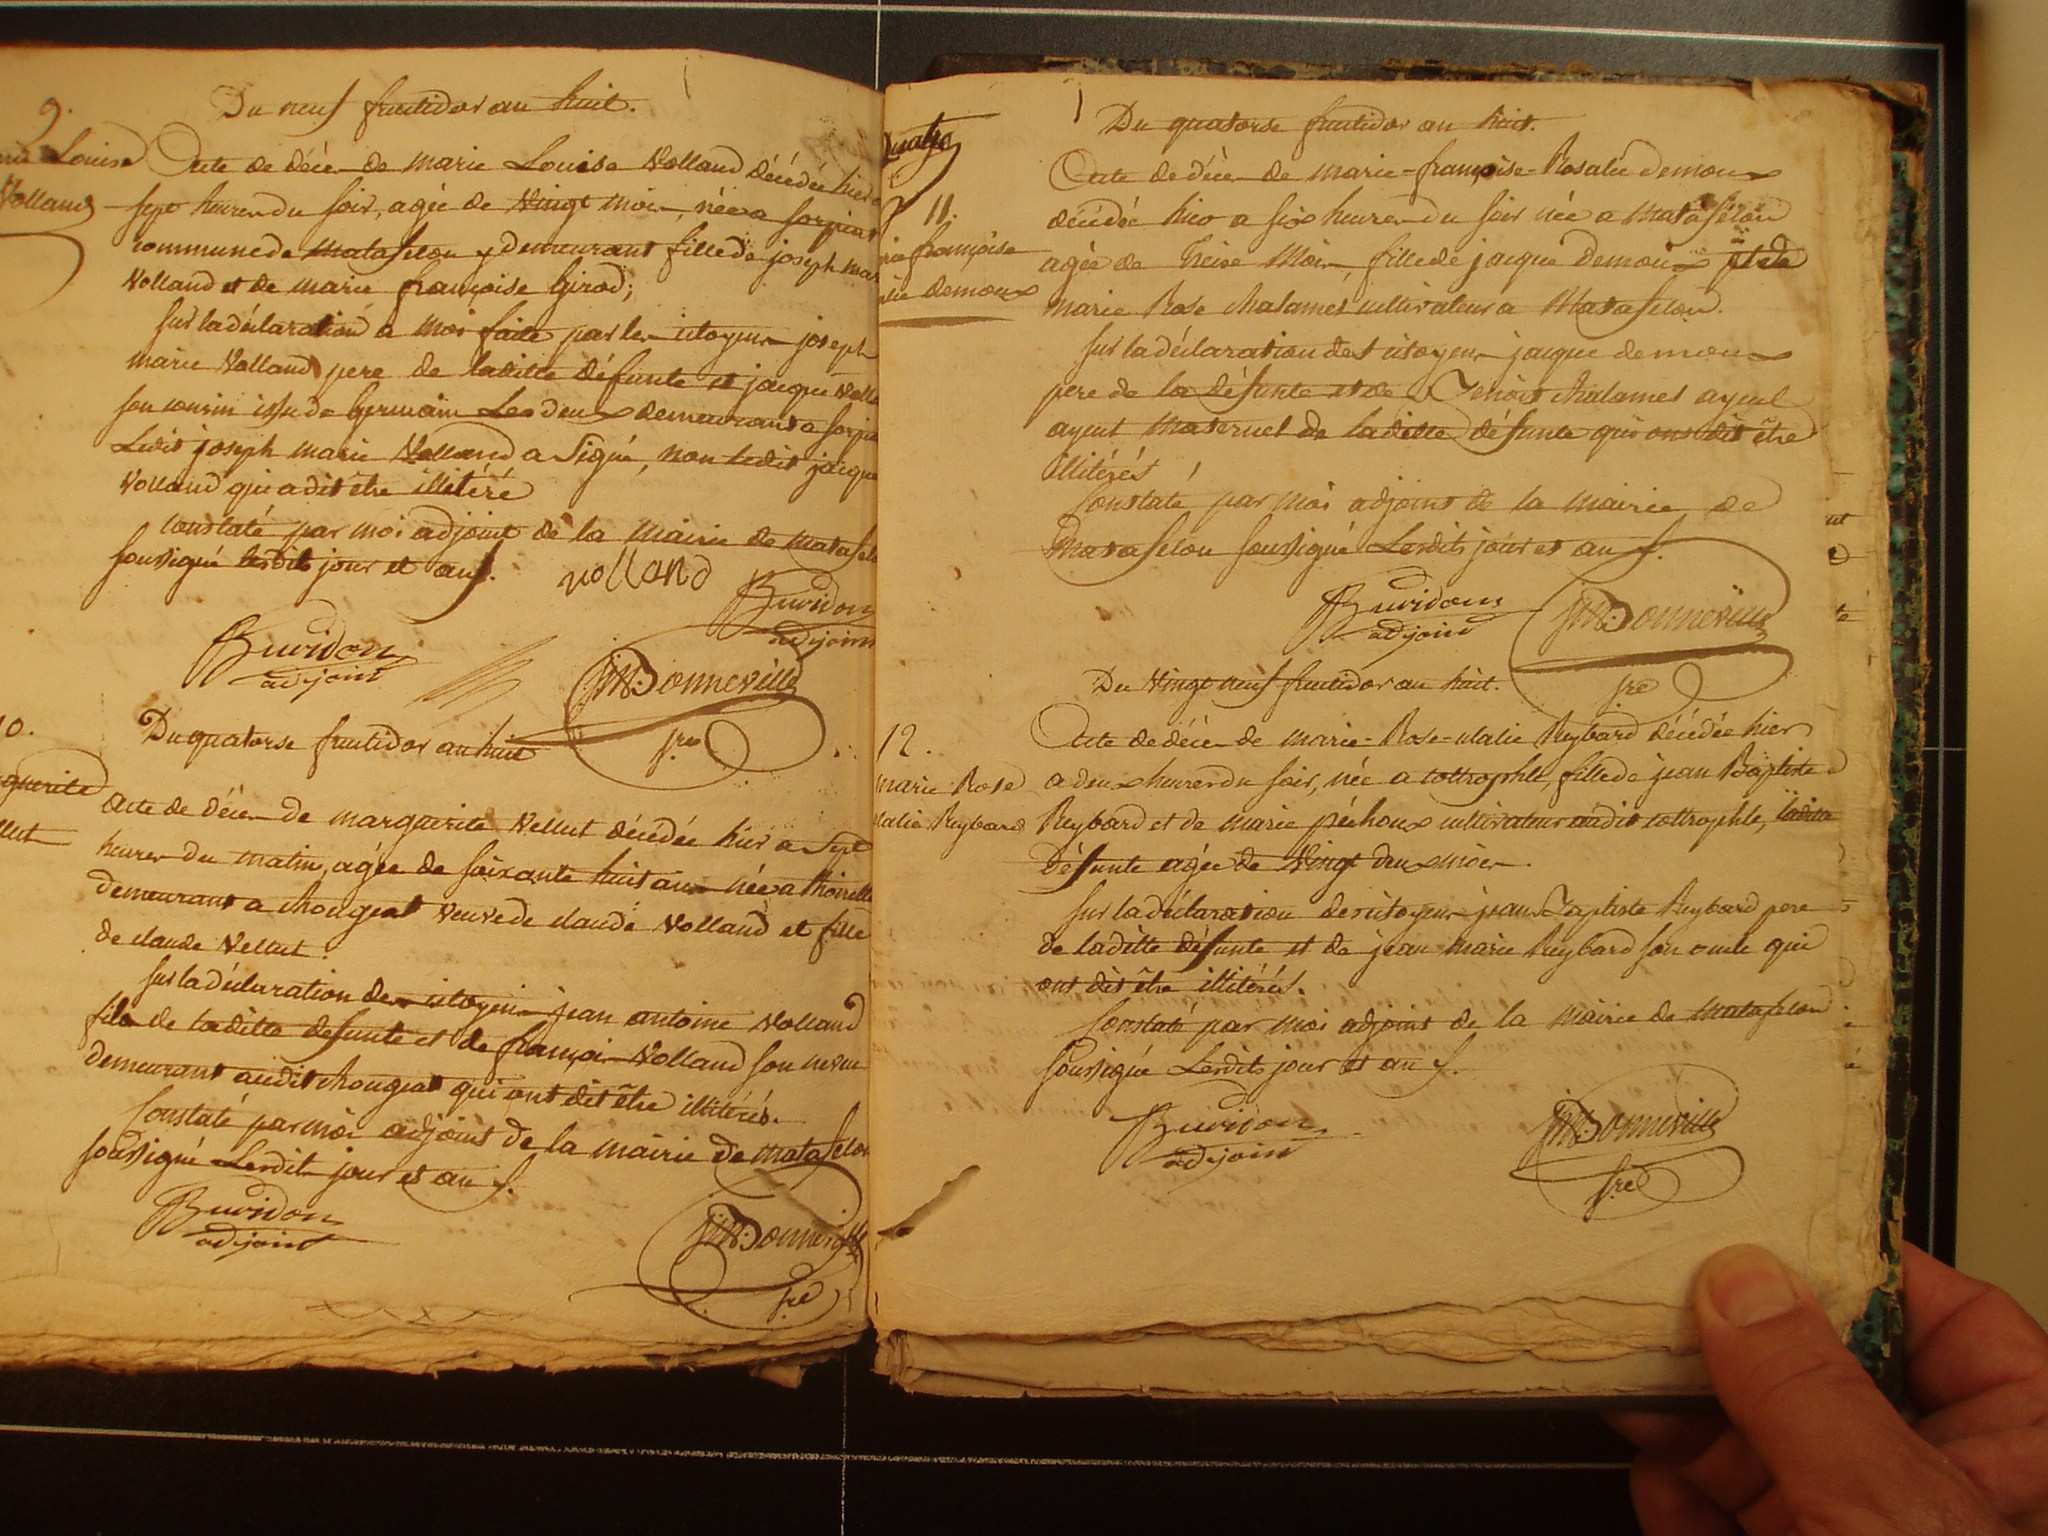 9.
Du neuf fructidor an huit.
Louise
Volland
Acte de décè de marie Louise Volland décédée hier a
sept heures du soir, agée de vingt moi, née a sorpiat
commune de matafelon y demeurant fille de joseph mar
Volland et de marie françoise Girod;
sur la déclaration a moi faite par les citoyens joseph
marie Volland pere de laditte défunte et jacque Volla
son cousin issu de Germain Les deux demeurant a sorpia
Ledit joseph marie Volland a signé, non ledit jacque
Volland qui a dit être illitéré
constaté par moi adjoint de la mairie de matafelo
soussigné lesdits jour et an f.
volland
Buvidon
adjoint
Buvidon
adjoint
jM Bonneville
sre
10.
Du quatorse fructidor an huit
guerite
llut
acte de décè de marguerite Vellut décédée hier a sept
heures du matin, agée de soixante huit ans née a thoirette
demeurant a chougeat veuve de claude Volland et fille
de claude Vellut.
sur la déclaration des citoyens jean antoine Volland
fils de laditte défunte et de françoi Volland son neveu
demeurant audit chougeat qui ont dit être illitérés.
Constaté par moi adjoint de la mairie de matafelon
soussigné Lesdits jour et an f.
Buvidon
adjoint
jM Bonneville
sre
Du quatorse fructidor an huit.
11.
françoise
demoux
Acte de décè de marie-françoise-Rosalie demoux
décédée hier a six heures du soir née a matafélon
agée de treise Moi, fille de jacque demoux et de
marie Rose chalamel cultivateur a Matafelon.
sur la déclaration des citoyens jacque demoux
pere de la défunte et de Benoit chalamel ayeul
ayeul maternel de laditte défunte qui ont dit être
illitérés
Constaté par moi adjoint de la mairie de
Matafelon soussigné Lesdits jour et an f.
Buvidon
adjoint
jM Bonneville
sre
Du vingt neuf fructidor an huit.
12.
marie Rose
lalie Reybard
Acte de décè de marie-Rose-ulalie Reybard décédée hier
a deux heures du soir, née a cottrophle, fille de jean Baptiste
Reybard et de marie péchoux cultivateur audit cottrophle, laditte
défunte agée de Vingt deux moi.
sur la déclaration des citoyens jean Baptiste Reybard pere
de laditte défunte et de jean marie Reybard son oncle qui
ont dit être illitérés.
Constaté par moi adjoint de la mairie de matafelon
soussigné Lesdits jour et an f.
Buvidon
adjoint
jM Bonneville
sre